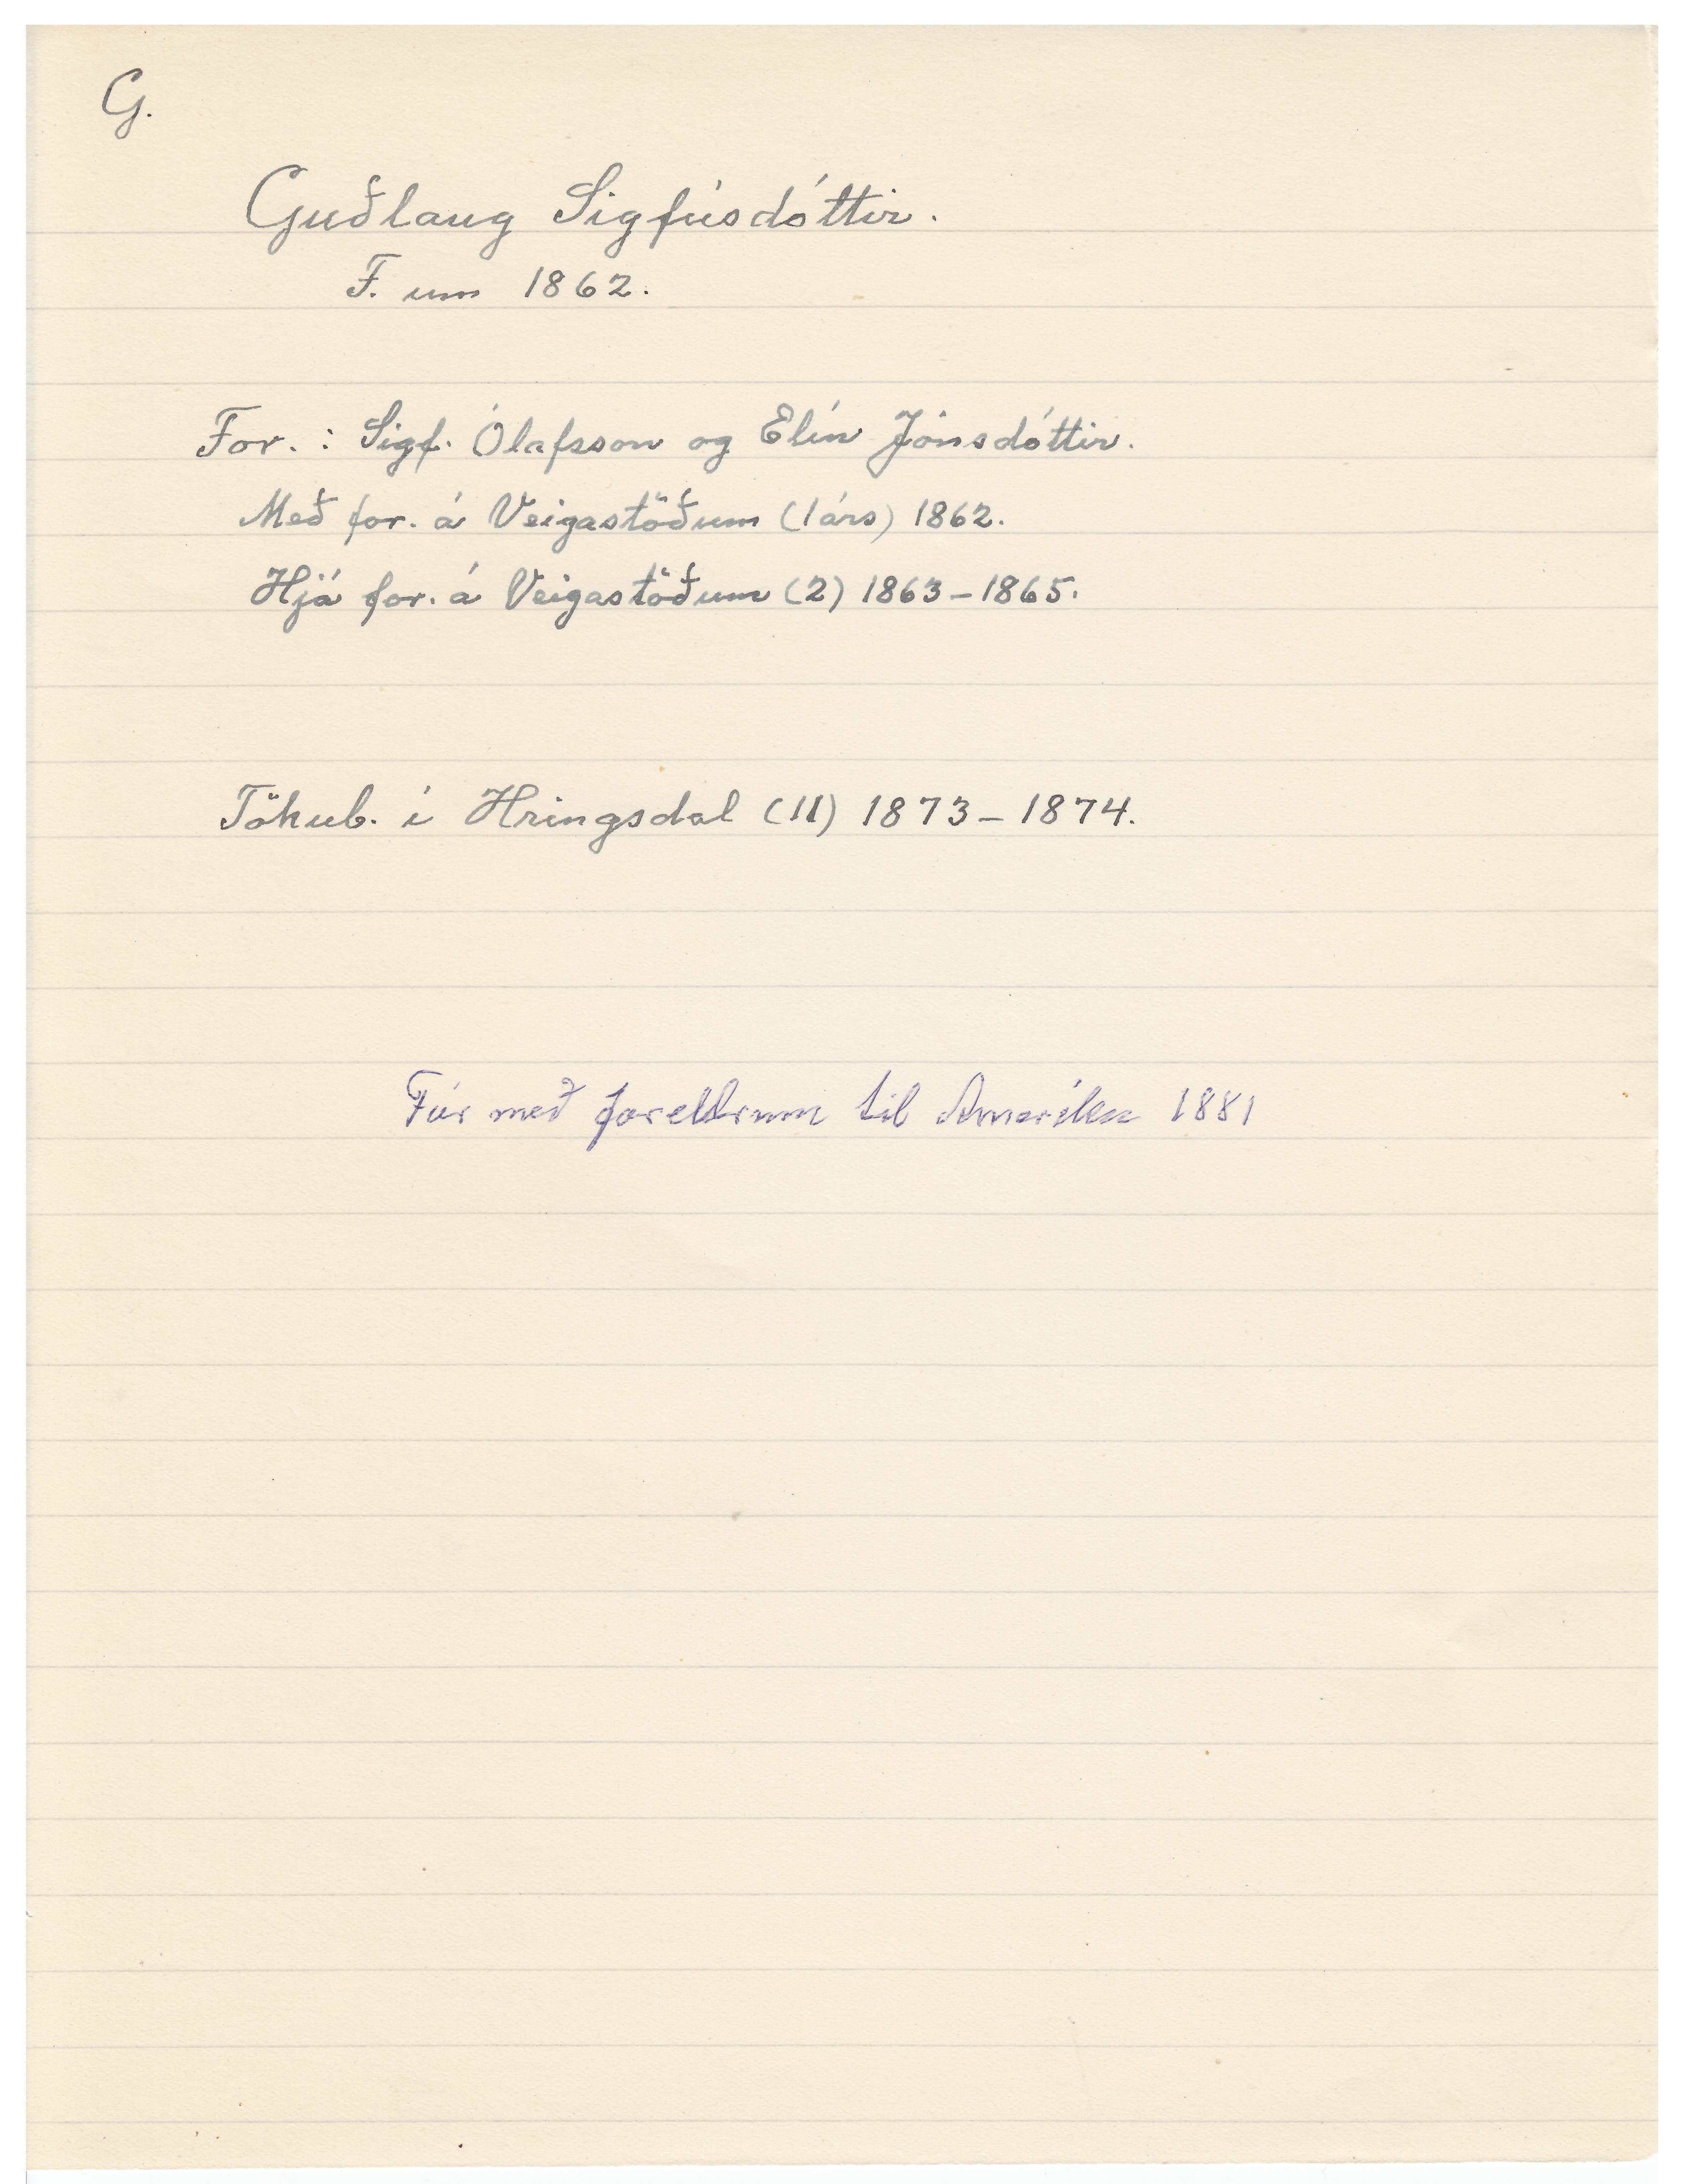 G.
Guðlaug Sigfúsdóttir.
F. um 1862.
For. : Sigf. Ólafsson og Elín Jónsdóttir.
Með for. á Veigastöðum (1 árs) 1862.
Hjá for. á Veigastöðum (2) 1863-1865.
Tökub. í Hringsdal (11) 1873-1874.
Fór með foreldrum til Ameríku 1881